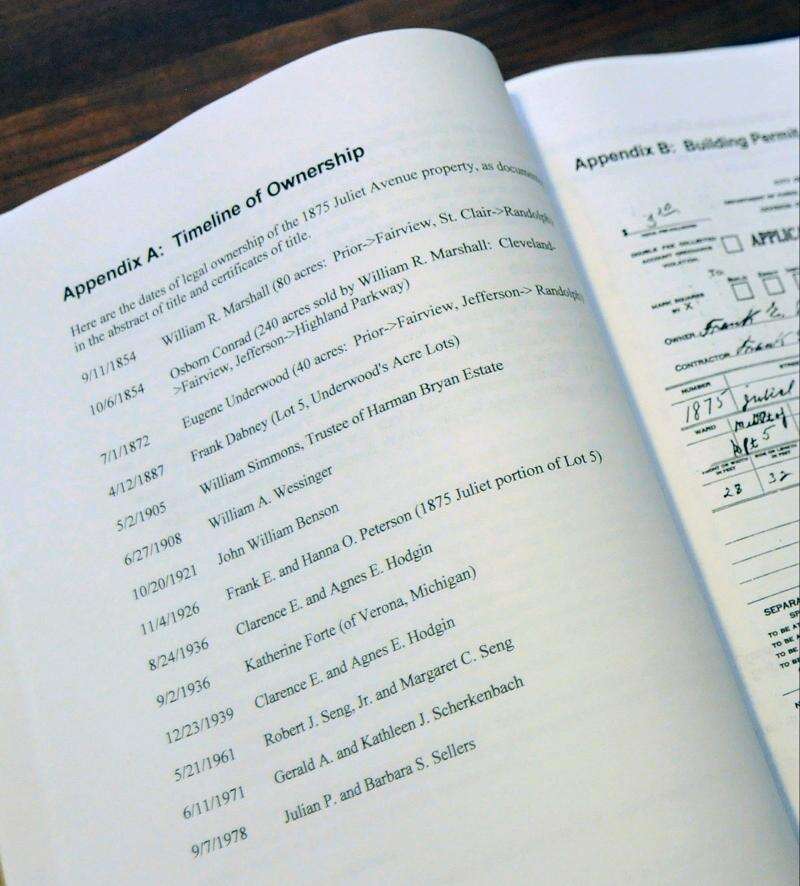 Appendix A: Timeline of Ownership
Here are the dates of legal ownership of the 1875 Juliet Avenue property, as
in the abstract of title and certificates of title.
9/11/1854 William R. Marshall (80 acres: Prior->Fairview, St. Clair->Randolph)
10/6/1854 Osborn Conrad (240 acres sold by William R. Marshall: Cleveland-
>Fairview, Jefferson->Highland Parkway)
7/1/1872 Eugene Underwood (40 acres: Prior->Fairview, Jefferson-> Randolph)
4/12/1887 Frank Dabney (Lot 5, Underwood's Acre Lots)
5/2/1905 William Simmons, Trustee of Harman Bryan Estate
6/27/1908 William A. Wessinger
10/20/1921 John William Benson
11/4/1926 Frank E. and Hanna O. Peterson (1875 Juliet portion of Lot 5)
8/24/1936 Clarence E. and Agnes E. Hodgin
9/2/1936 Katherine Forte (of Verona, Michigan)
12/23/1939 Clarence E. and Agnes E. Hodgin
5/21/1961 Robert J. Seng, Jr. and Margaret C. Seng
6/11/1971 Gerald A. and Kathleen J. Scherkenbach
9/7/1978 Julian P. and Barbara S. Sellers
Appendix B: Building Permit
$
APPLIC
MARK SQUARES
BY X
OWNER Frank
CONTRACTOR Frank
NUMBER
1875 Juliet
WARD
Lot 5
28 32
SEPARA
TO BE
TO BE
TO BE
TO BE